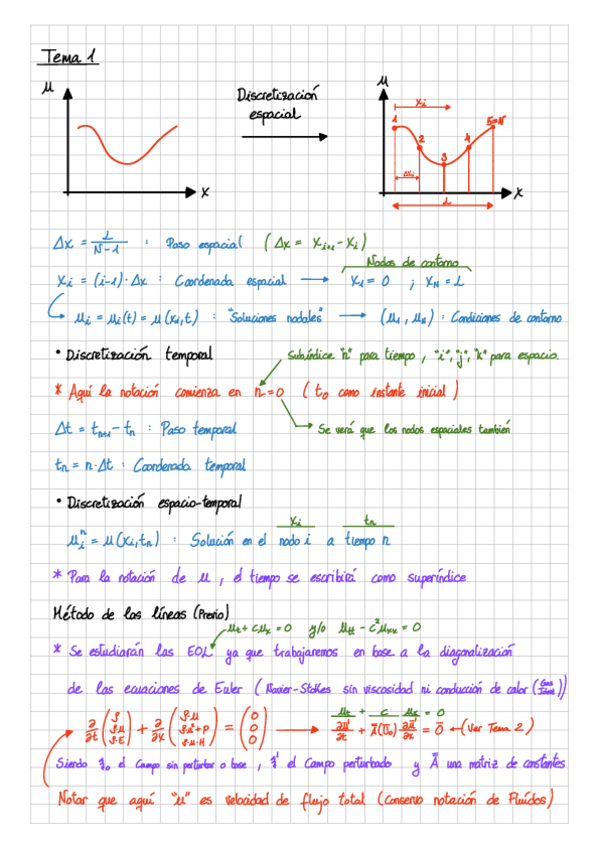 Tema 1
u
Discretización
espacial
u
xi
1
2
3
4
5=N
Δxi
L
x
x
Δx = L/(N-1) : Paso espacial (Δx = xi+1 - xi)
Nodos de contorno
xi = (i-1)·Δx : Coordenada espacial → x1 = 0 ; xN = L
ui = ui(t) = u(xi,t) : "Soluciones nodales" → (u1, uN) : Condiciones de contorno
• Discretización temporal
Subíndice "n" para tiempo, "i", "j", "k" para espacio.
* Aquí la notación comienza en n=0 (t0 como instante inicial)
Δt = tn+1 - tn : Paso temporal
Se verá que los nodos espaciales también
tn = n·Δt : Coordenada temporal
• Discretización espacio-temporal
xi tn
ui^n = u(xi,tn) : Solución en el nodo i a tiempo n
* Para la notación de u, el tiempo se escribirá como superíndice
Método de las líneas (Previo)
ut + cux = 0 y/o utt - c²uxx = 0
* Se estudiarán las EOL ya que trabajaremos en base a la diagonalización
de las ecuaciones de Euler (Navier-Stokes sin viscosidad ni conducción de calor
ut + c ux = 0
∂/∂t (ρ ρ·u ρ·E) + ∂/∂x (ρ·u ρ·u²+P ρ·u·H) = (0 0 0) → ∂u̅'/∂t + A̅(u̅0) ∂u̅'/∂x = 0̅ ← (Ver Tema 2)
Siendo el Campo sin perturbar o base, el Campo perturbado y A̅ una matriz de constantes
Notar que aquí "u" es velocidad de flujo total (Conservo notación de Fluidos)